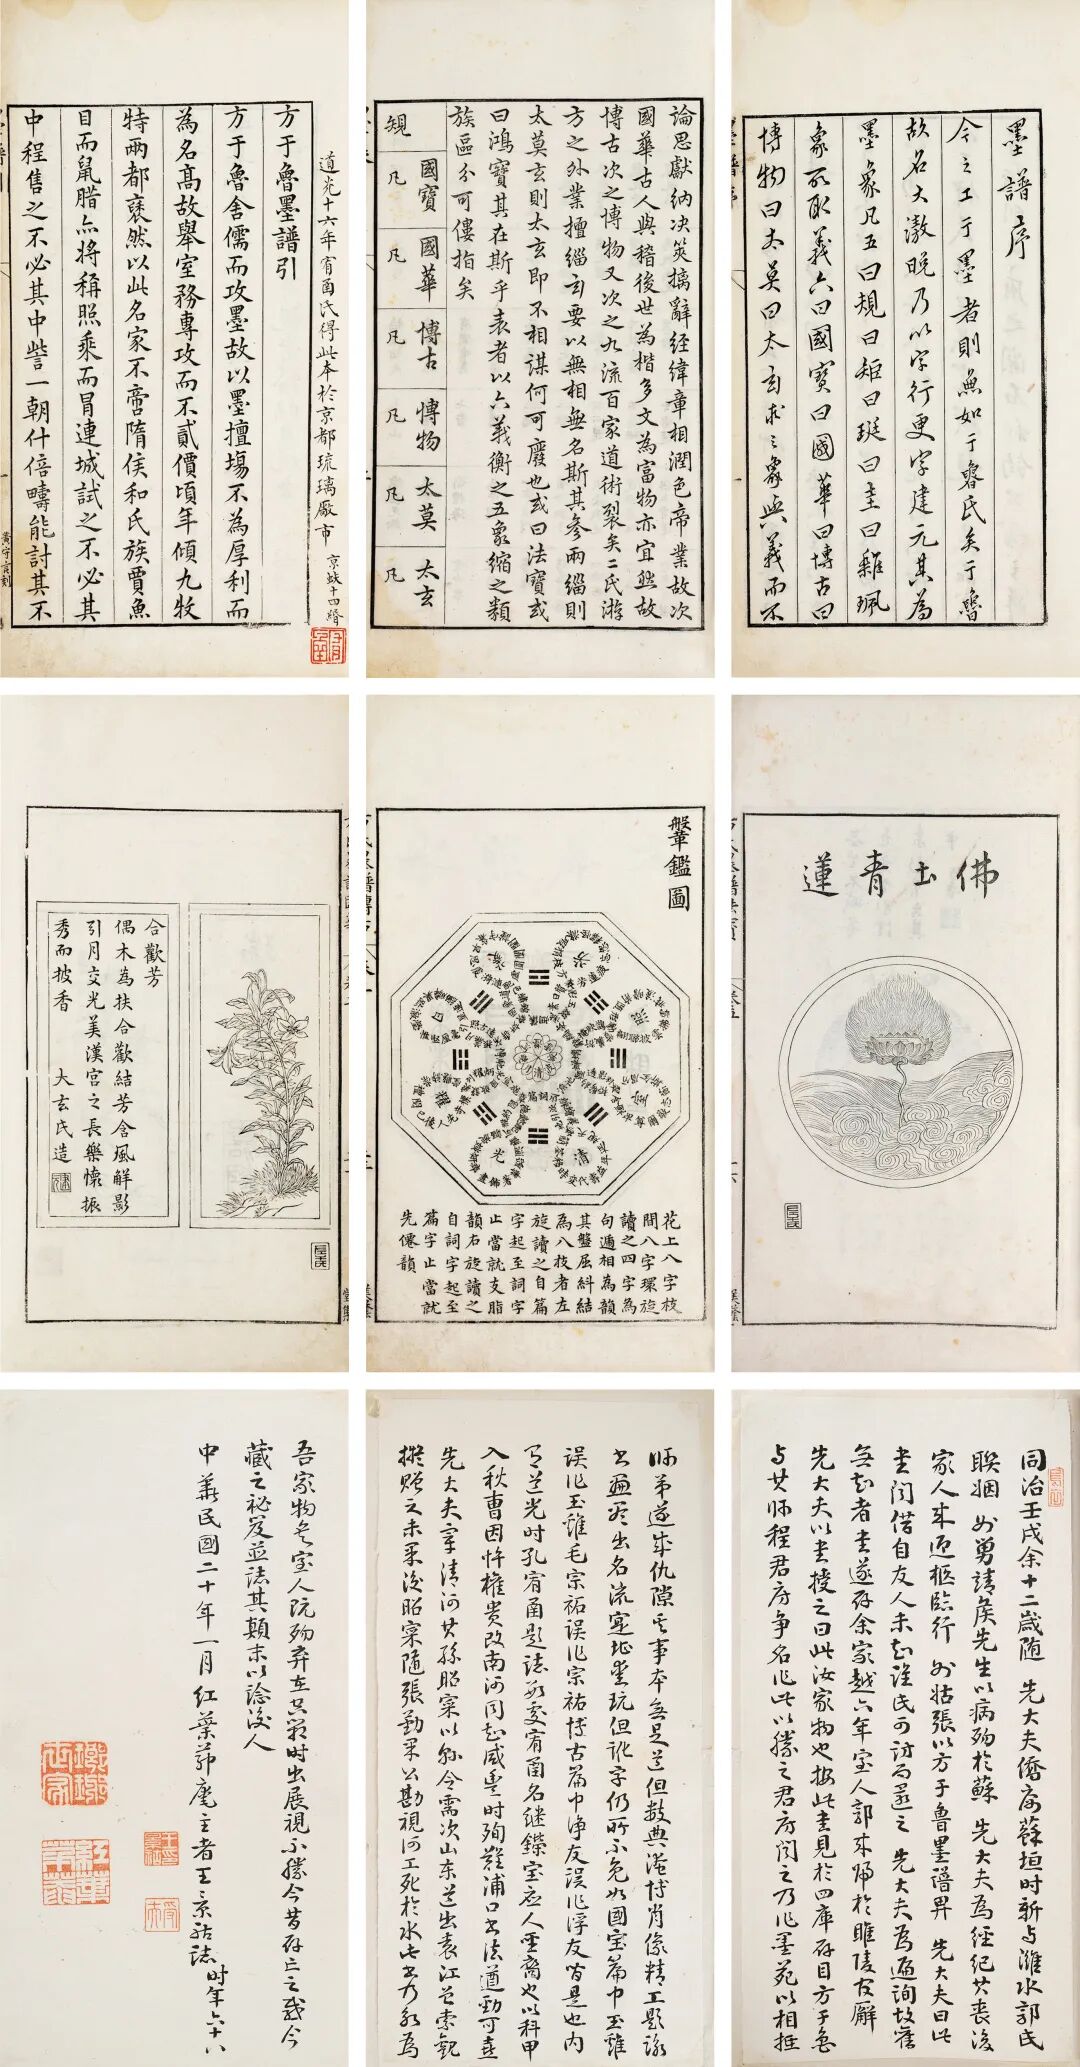 墨譜序
今之工于墨者則無如于魯氏矣于魯
故名大澂晚乃以字行更字建元其為
墨象凡五曰規曰矩曰珽曰圭曰雜珮
象所取義六曰國寶曰國華曰博古曰
博物曰太莫曰太玄求之象與義而不
論思獻納决筴摛辭經緯章相潤色帝業故次
國華古人與稽後世為楷多文為富物亦宜然故
博古次之博物又次之九流百家道術裂矣二氏游
方之外業擅緇玄要以無相無名斯其參兩緇則
太莫玄則太玄即不相謀何可廢也或曰法寶或
曰鴻寶其在斯乎表者以六義衡之五象縮之類
族區分可僂指矣
規
國寶 國華 博古 博物 太莫 太玄
凡 凡 凡 凡 凡 凡
道光十六年宥函氏得此本於京都琉璃厰市 京蚨十四緡
方于魯墨譜引
方于魯舍儒而攻墨故以墨擅塲不為厚利而
為名高故舉室務專攻而不貳價頃年傾九牧
特兩都褎然以此名家不啻隋侯和氏族賈魚
目而鼠腊亦將稱照乘而冒連城試之不必其
中程售之不必其中訾一朝什倍疇能討其不
黃守言刻
佛土青蓮
鞶鑑圖
花上八字枝
間八字環旋
讀之四字為
句遞相為韻
其盤屈糾結
為八枝者左
旋讀之自篇
字起至詞字
止當就支脂
韻右旋讀之
自詞字起至
篇字止當就
先僊韻
合歡芳
偶木為扶合歡結芳含風解影
引月交光美漢宮之長樂懷振
秀而披香
大玄氏造
同治壬戌余十二歲隨 先大夫僑寓蘇垣時新与濰水郭氏
聯姻 外舅請矦先生以病殁於蘇 先大夫為經紀其喪後
家人來迎柩臨行 外姑張以方于魯墨譜畀 先大夫曰此
書閒借自友人未知誰氏可訪而還之 先大夫為遍詢故舊
無知者書遂存余家越六年室人郭來歸於睢陵官廨
先大夫以書授之曰此汝家物也按此書見於四庫存目方于魯
与其師程君房争名作此以勝之君房聞之乃作墨苑以相抵
師弟遂成仇隙其事本無足道但數典淹博肖像精工題詠
書 出名流寔堪愛玩但訛字仍所不免如國宝篇中玉雞
誤作玉雖毛宗祏誤作宗祐博古篇中净友誤作浮友皆是也内
有道光時孔宥函題誌 宥函名继鑅 人聖裔也以科甲
入秋曹因忤權贵改南河同知咸豐时殉難浦口书法遒勁可喜
先大夫宰清河其孫昭寀以 令需次山东道出袁江曾索觀
擬贈之未果後昭寀隨張勤果公勘視河工死於水此书乃永為
吾家物矣室人阮殁棄 时出展視不勝今昔存亡之感今
藏之祕笈並誌其顛末以諗後人
中華民國二十年一月紅葉 主者王景祜誌時年六十八